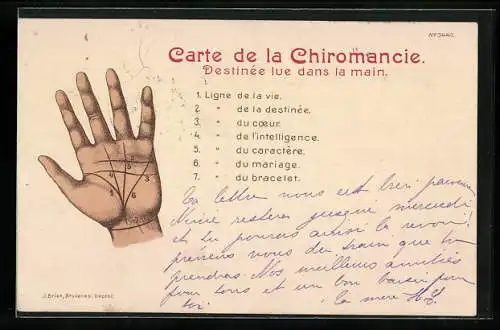 Nº 3440.
Carte de la Chiromancie.
Destinée lue dans la main.
1. Ligne de la vie.
2 " de la destinée.
3. " du cœur.
4. " de l'intelligence.
5. " du caractère.
6. " du mariage.
7. " du bracelet.
Ta lettre nous est bien parvenue
restera jusqu'à mercredi
et tu pourras ainsi la revoir!
nous du train que tu
prendras. Nos meilleurs amitiés
pour tous et un bon baiser pour
toi. Ta mère